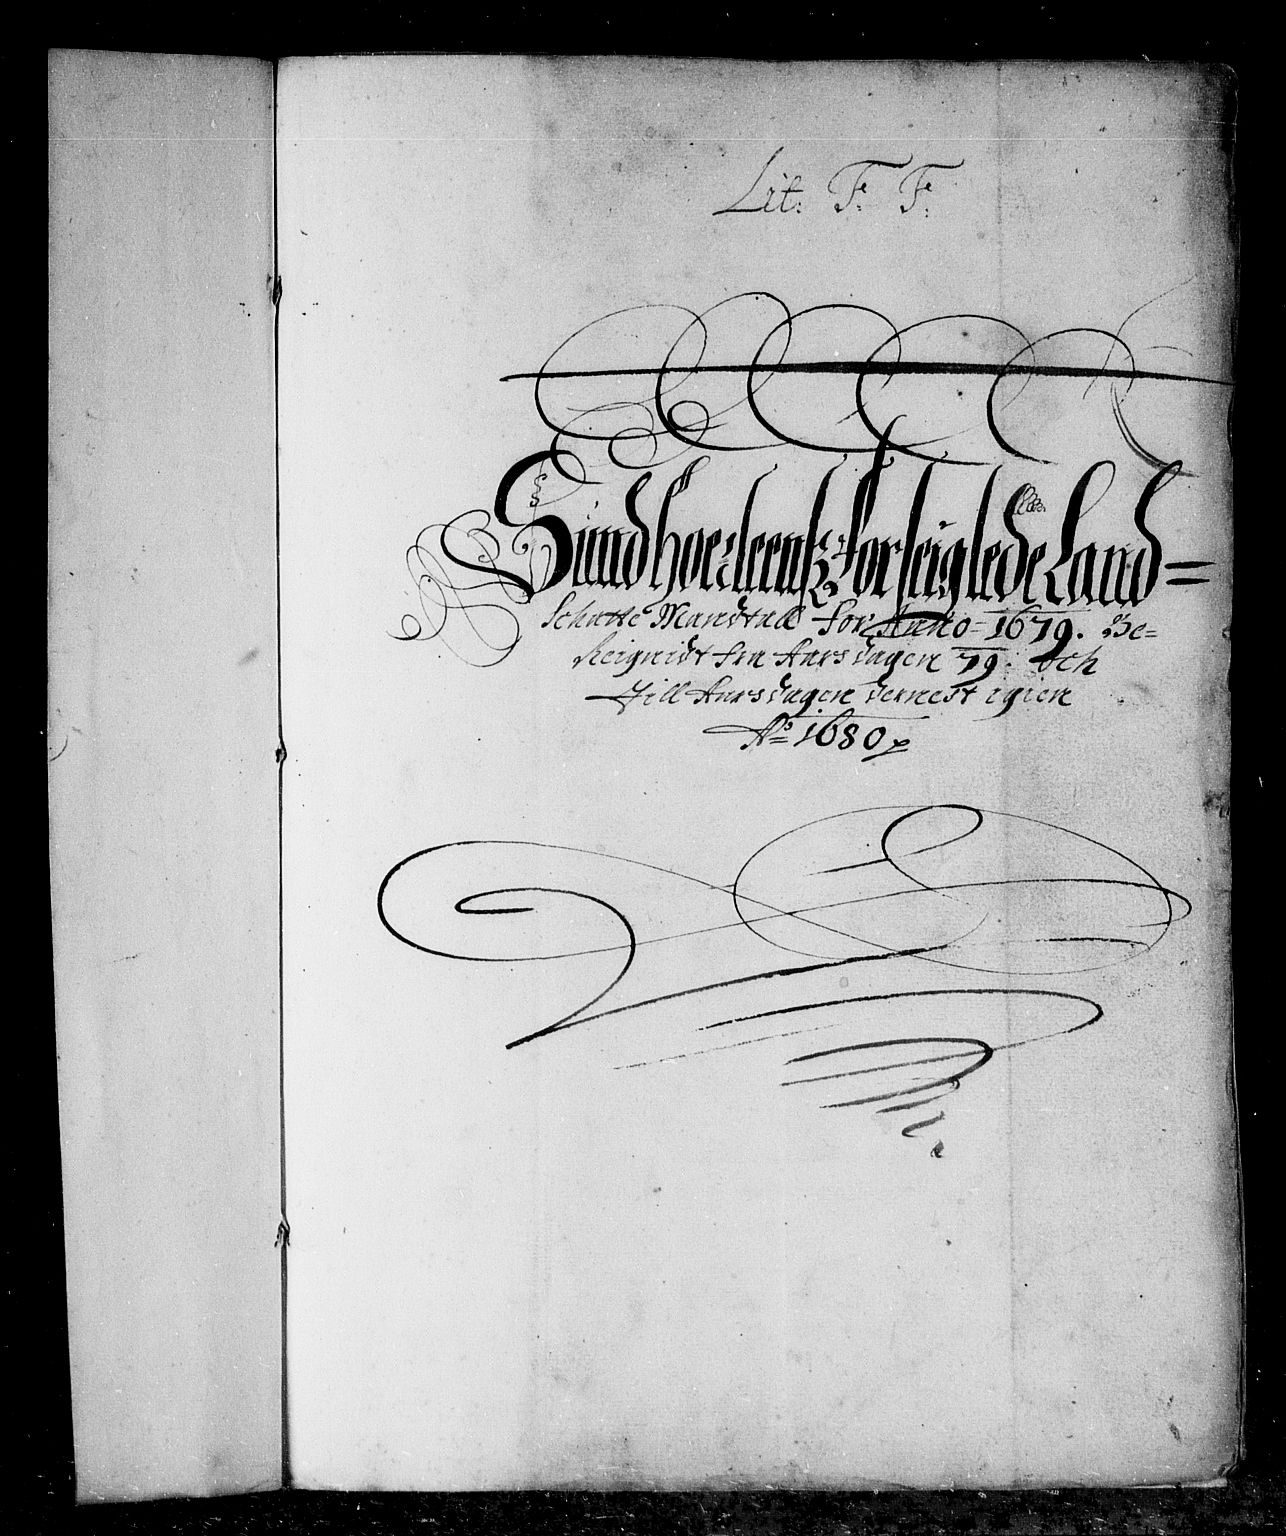 Lit: F. F.
Sundhorleens Forseiglede Land=
Schatte Mandtall for Anno 1679. Be=
Reignidt fra Aarsdagen 79. och
Till Aarsdagen dernest igien
Ao 1680